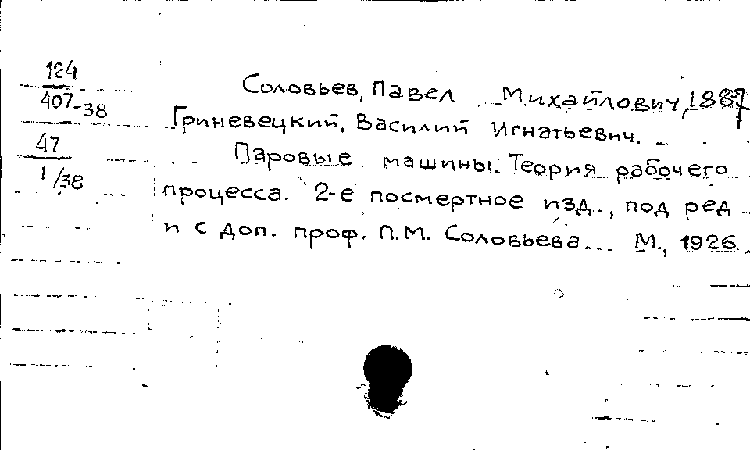 124
407-38
47
1/38
Соловьев, Павел Михайлович, 1887
Гриневецкий, Василий Игнатьевич.
Паровые машины. Теория рабочего
процесса. 2-е посмертное изд., под ред
и с доп. проф. П.М. Соловьева... М., 1926